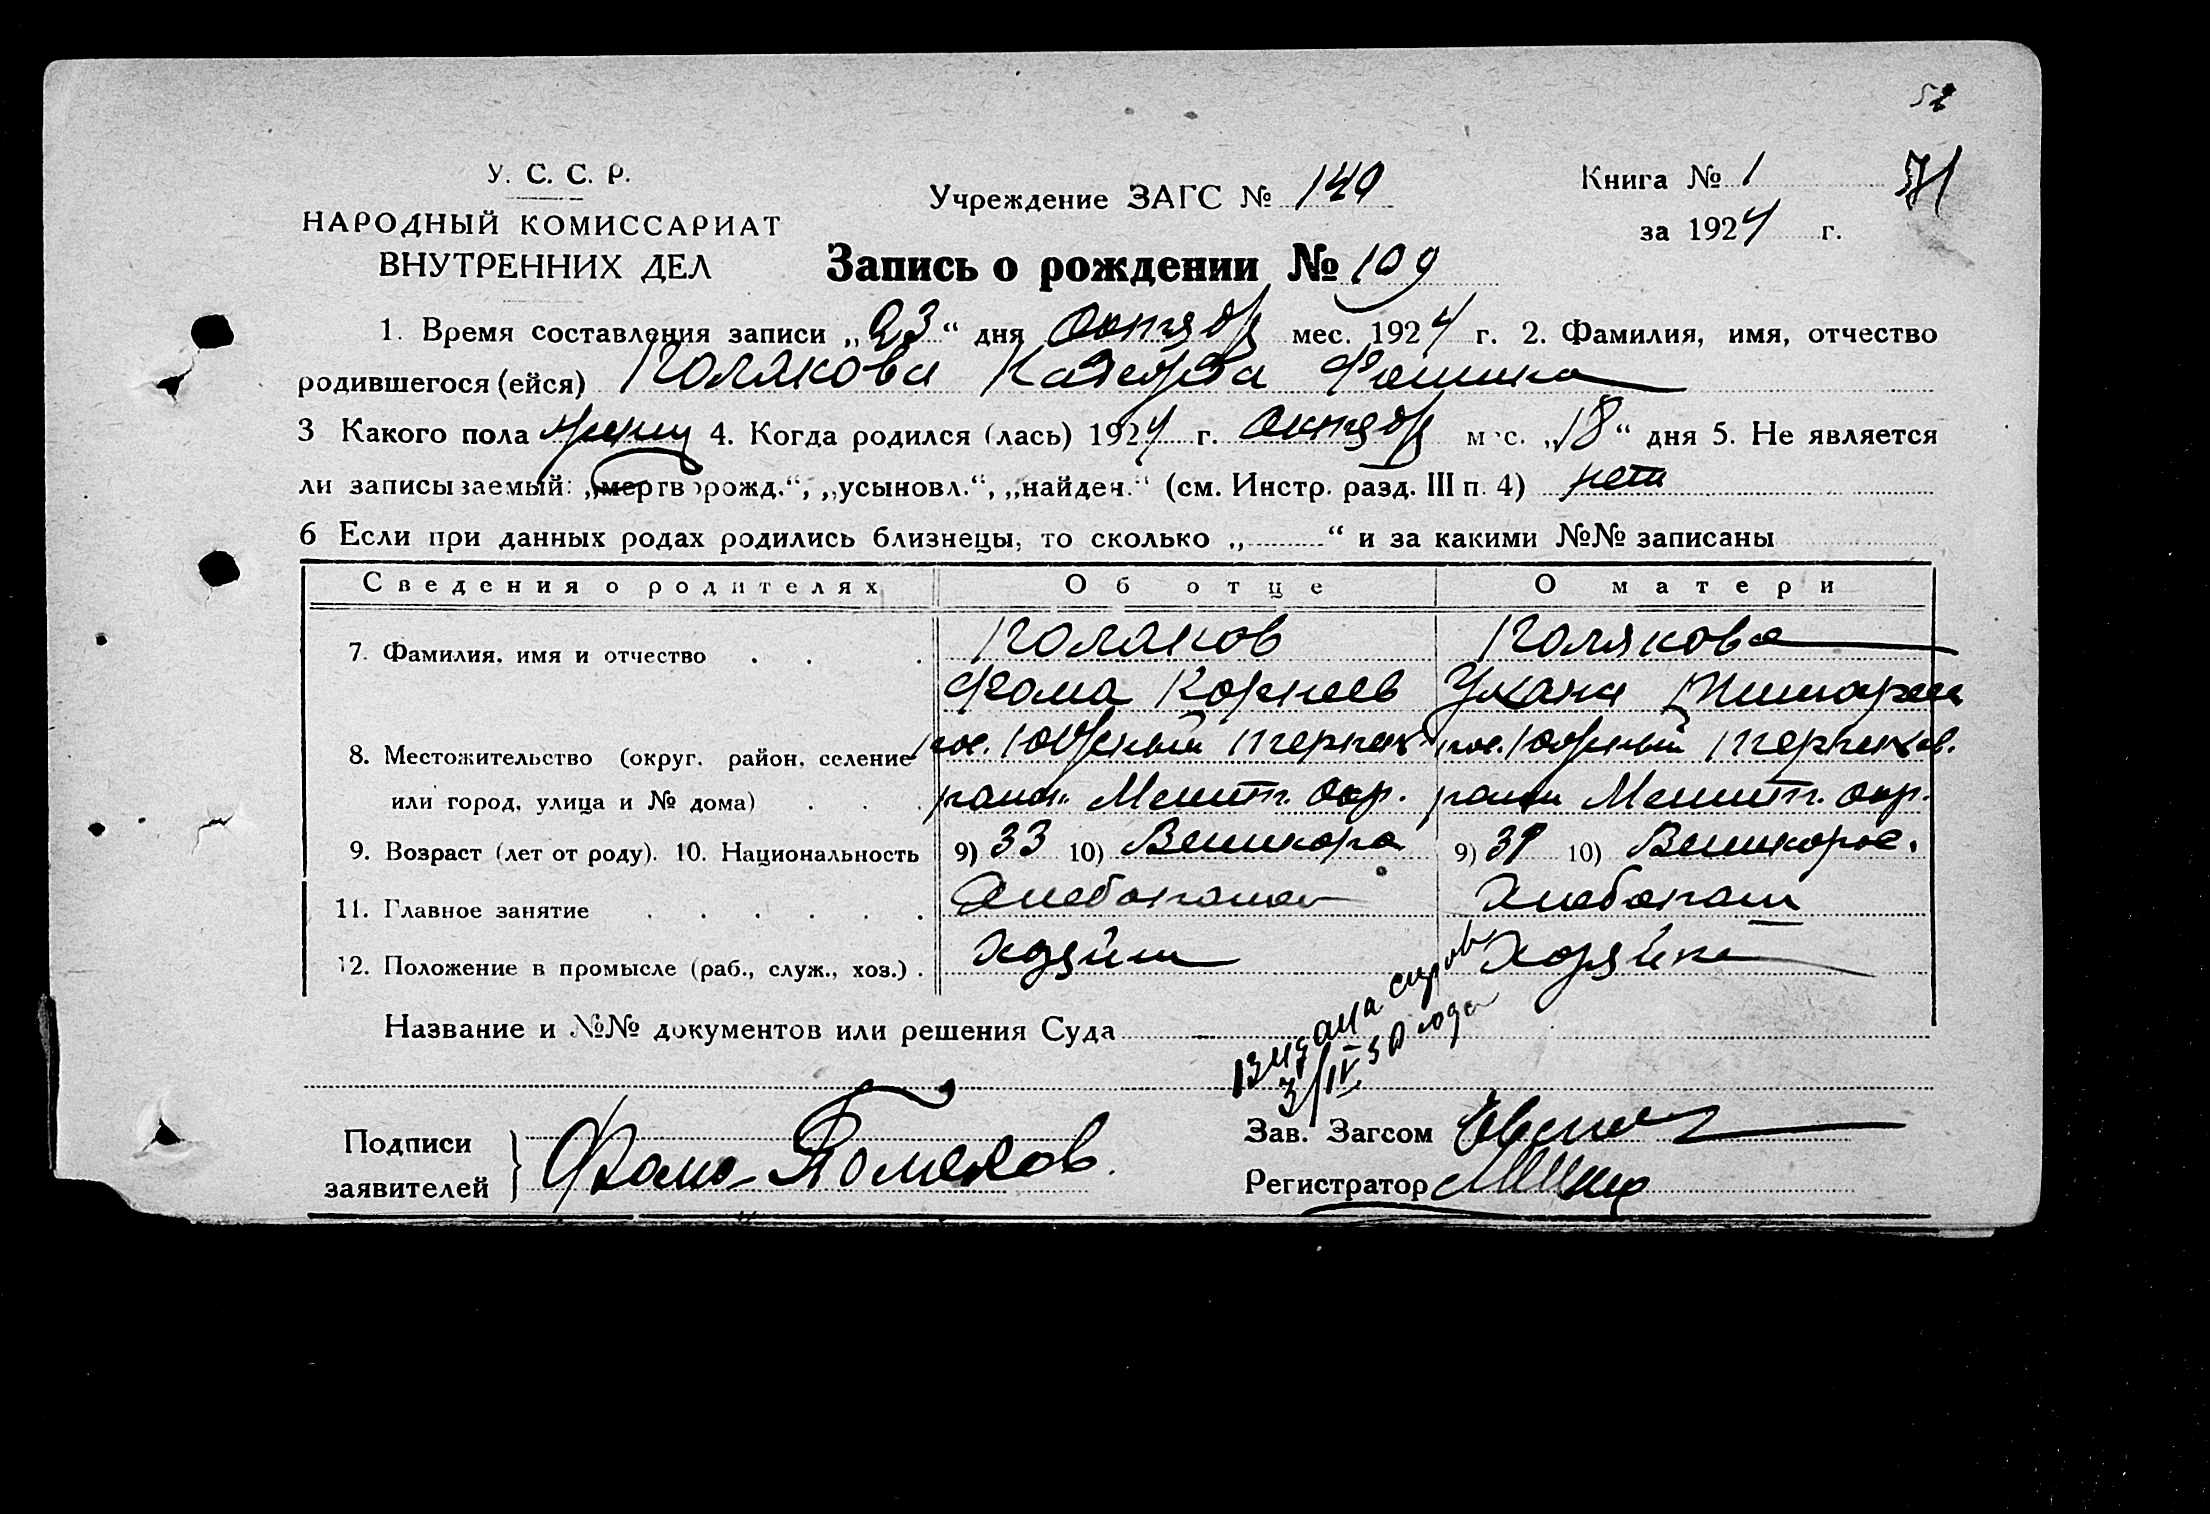 52
У. С. С. Р.
НАРОДНЫЙ КОМИССАРИАТ
ВНУТРЕННИХ ДЕЛ
Учреждение ЗАГС № 140
Книга № 1
71
за 1924 г.
Запись о рождении № 109
1. Время составления записи „23“ дня Октябр мес. 1924 г. 2. Фамилия, имя, отчество
родившегося (ейся) Полякова Фомина
3 Какого пола 4. Когда родился (лась) 1924 г. Октябр мес. „18“ дня 5. Не является
ли записываемый: „мертворожд.“, „усыновл.“, „найден.“ (см. Инстр. разд. III п. 4) нет
6 Если при данных родах родились близнецы, то сколько „ “ и за какими №№ записаны
Сведения о родителях Об отце О матери
7. Фамилия, имя и отчество Поляков Полякова
Фома Корнеев
8. Местожительство (округ, район, селение пос.
или город, улица и № дома) район Мелит. окр. район Мелитп. окр.
9. Возраст (лет от роду). 10. Национальность 9) 33 10) Великоро 9) 31 10) Великорос.
11. Главное занятие Хлебопашец Хлебопаш
12. Положение в промысле (раб., служ., хоз.) Хозяин Хозяйка
Название и №№ документов или решения Суда
3/IV 30 года
Подписи
заявителей
Фома Поляков.
Зав. Загсом
Регистратор